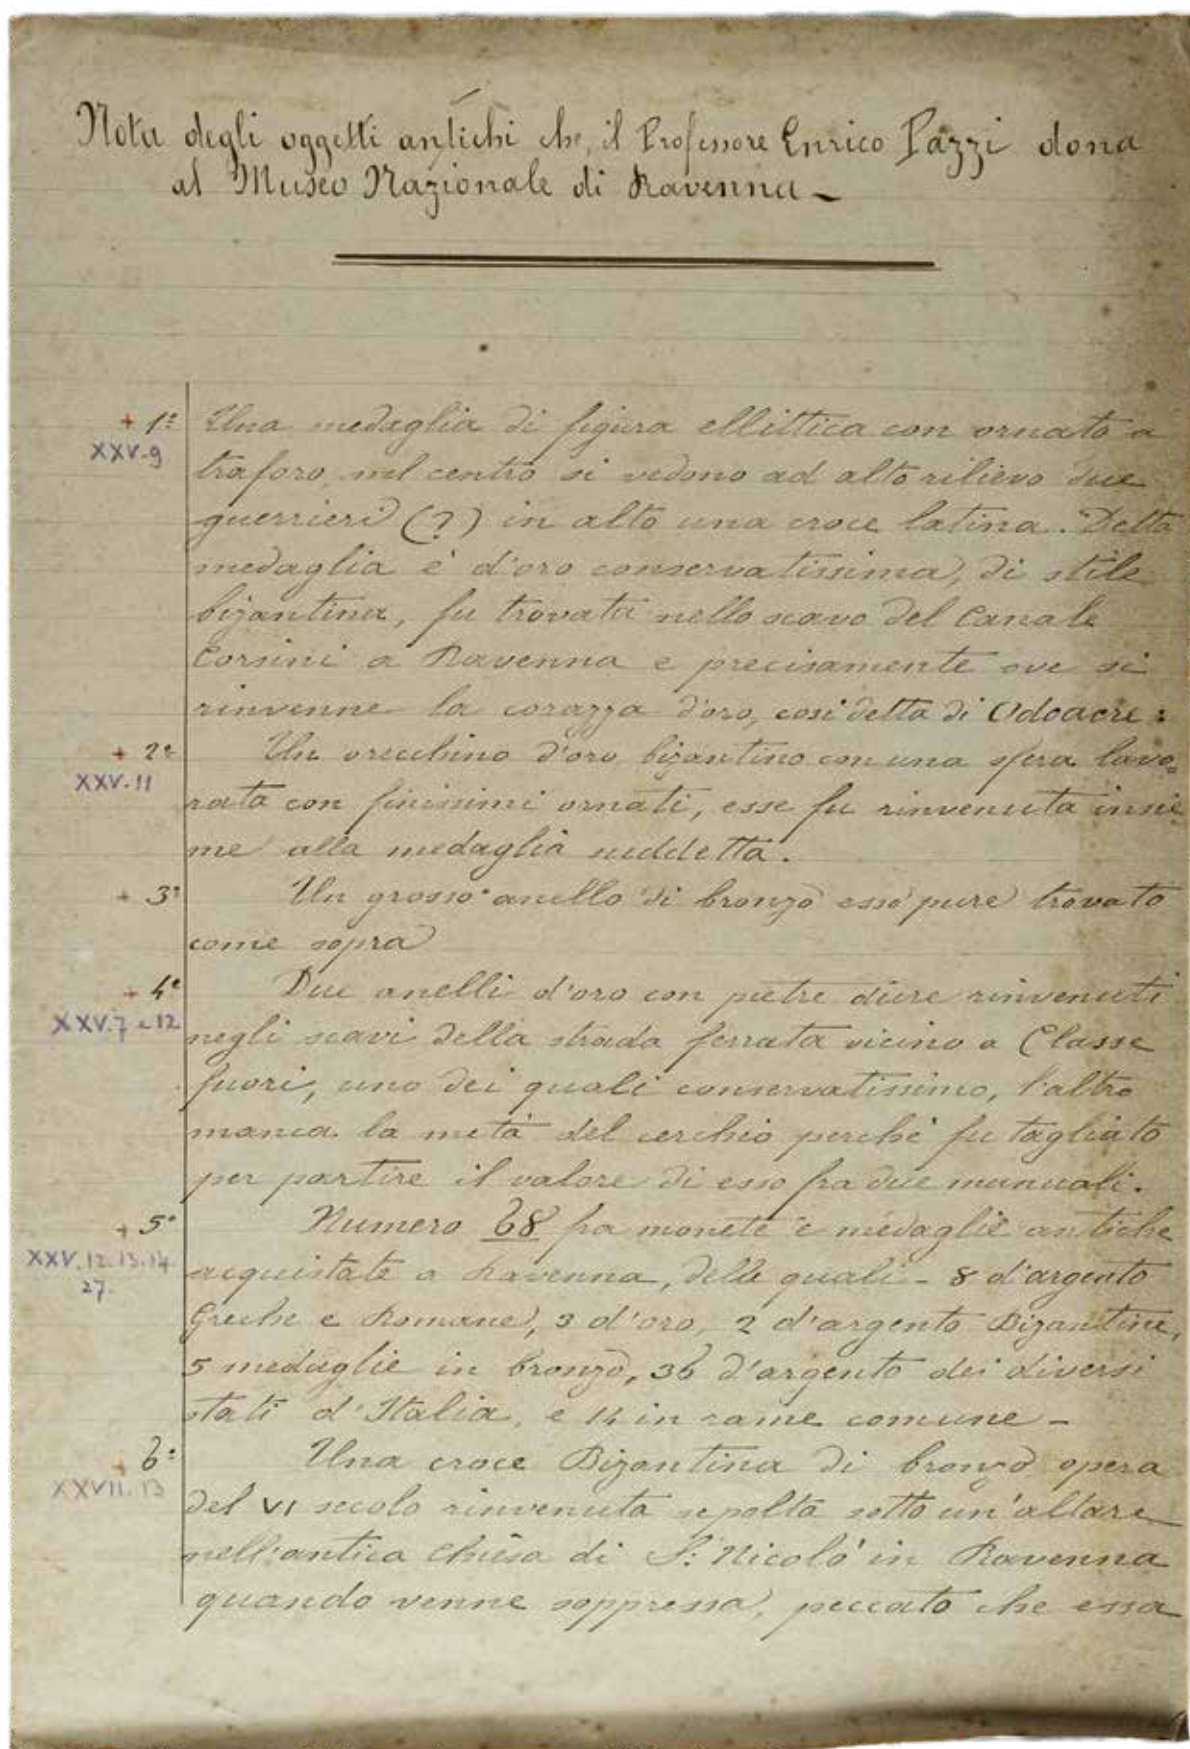 Nota degli oggetti antichi che il Professore Enrico Pazzi dona
al Museo Nazionale di Ravenna -
+ 1º Una medaglia di figura ellittica con ornato a
XXV.9 traforo, nel centro si vedono ad alto rilievo due
guerrieri (?) in alto una croce latina. Detta
medaglia è d'oro conservatissima, di stile
bizantina, fu trovata nello scavo del Canale
Corsini a Ravenna e precisamente ove si
rinvenne la corazza d'oro, così detta di Odoacre:
+ 2º Un orecchino d'oro bizantino con una sfera lavo=
XXV.11 rata con finissimi ornati, esse fu rinvenuta insie
me alla medaglia suddetta.
+ 3º Un grosso anello di bronzo esso pure trovato
come sopra
+ 4º Due anelli d'oro con pietre dure rinvenuti
XXV.7 e 12 negli scavi della strada ferrata vicino a Classe
fuori, uno dei quali conservatissimo, l'altro
manca la metà del cerchio perché fu tagliato
per partire il valore di esso fra due manuali.
+ 5º Numero 68 fra monete e medaglie antiche
XXV.12.13.14 acquistate a Ravenna, delle quali - 8 d'argento
27. Greche e Romane, 3 d'oro, 2 d'argento Bizantine,
5 medaglie in bronzo, 36 d'argento dei diversi
stati d'Italia, e 14 in rame comune -
+ 6º Una croce Bizantina di bronzo opera
XXVII.13 del VI secolo rinvenuta sepolta sotto un'altare
nell'antica Chiesa di S: Nicolò in Ravenna
quando venne soppressa, peccato che essa